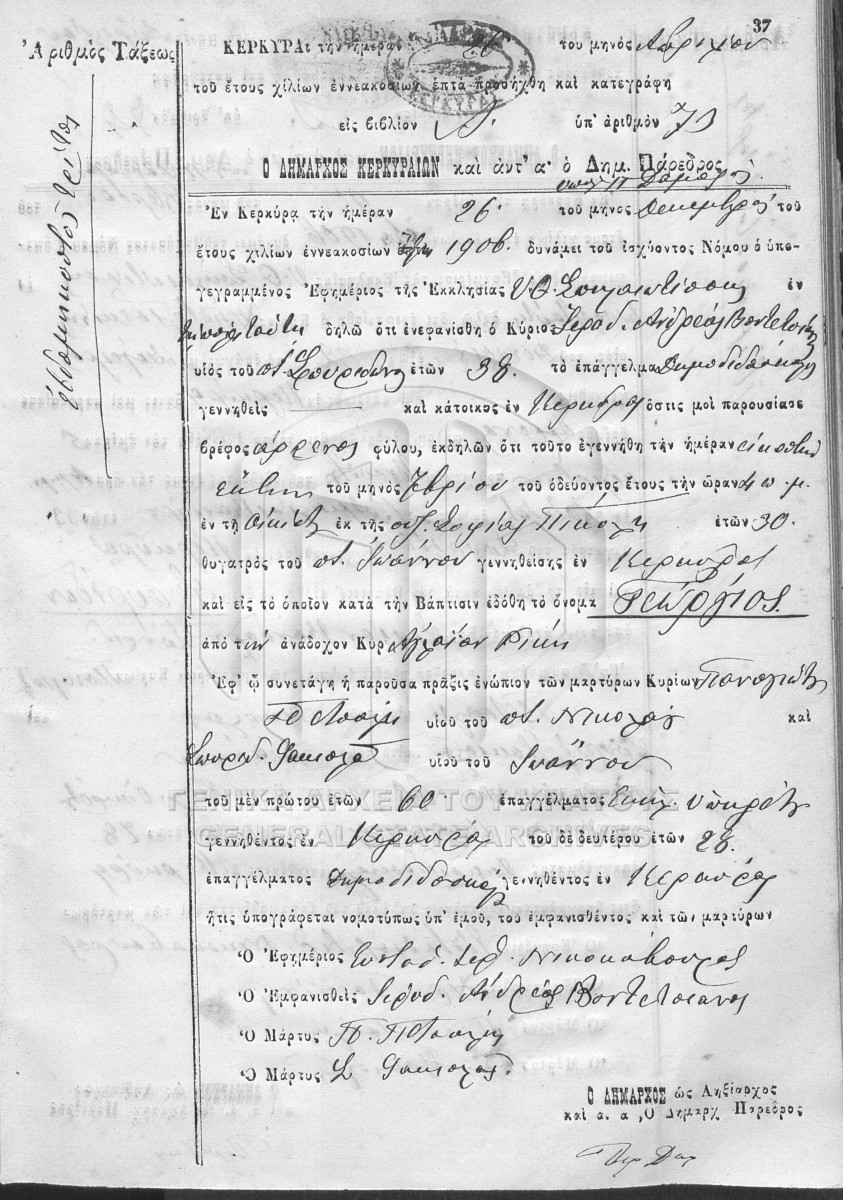 37
Ἀριθμὸς Τάξεως
ΚΕΡΚΥΡΑι τὴν ἡμέραν 26 τοῦ μηνὸς Ἀπριλίου
τοῦ ἔτους χίλιων ἐννεακοσίων ἑπτὰ προσήχθη καὶ κατεγράφη
εἰς βιβλίον Α. ὑπ' ἀριθμὸν 73
ἑβδομηκοστὸς τρίτος
Ο ΔΗΜΑΡΧΟΣ ΚΕΡΚΥΡΑΙΩΝ καὶ ἀντ' α· ὁ Δημ. Πάρεδρος
Ἐν Κερκύρᾳ τὴν ἡμέραν 26. τοῦ μηνὸς Δεκεμβρίου τοῦ
ἔτους χιλίων ἐννεακοσίων 1906. δυνάμει τοῦ ἰσχύοντος Νόμου ὁ ὑπο-
γεγραμμένος Ἐφημέριος τῆς Ἐκκλησίας Υ.Θ. ἐν
δηλῶ ὅτι ἐνεφανίσθη ὁ Κύριος Ἱεροδ. Ἀνδρέας Βοντετσιάνος
υἱὸς τοῦ ποτ. Σπυρίδωνος ἐτῶν 38. τὸ ἐπάγγελμα Δημοδιδάσκαλος
γεννηθεὶς — καὶ κάτοικος ἐν Κερκύρᾳ ὅστις μοὶ παρουσίασε
βρέφος ἄρρενος φύλου, ἐκδηλῶν ὅτι τοῦτο ἐγεννήθη τὴν ἡμέραν εἰκοστὴν
ἕκτην τοῦ μηνὸς 7βρίου τοῦ ὁδεύοντος ἔτους τὴν ὥραν 4 π.μ.
ἐν τῇ οἰκίᾳ ἐκ τῆς συζ. Σοφίας Πικούλη ἐτῶν 30.
θυγατρὸς τοῦ ποτ. Ἰωάννου γεννηθείσης ἐν Κερκύρᾳ
καὶ εἰς τὸ ὁποῖον κατὰ τὴν Βάπτισιν ἐδόθη τὸ ὄνομα Γεώργιος.
ἀπὸ τὴν ἀνάδοχον Κυρ
Ἐφ' ᾧ συνετάγη ἡ παροῦσα πρᾶξις ἐνώπιον τῶν μαρτύρων Κυρίων Παναγιώτη
Πετσάλη υἱοῦ τοῦ ποτ. Νικολάου καὶ
Σπυρίδ. υἱοῦ τοῦ Ἰωάννου
τοῦ μὲν πρώτου ἐτῶν 60 ἐπαγγέλματος Ἐκκλ. ὑπηρέτη
γεννηθέντος ἐν Κερκύρᾳ τοῦ δὲ δευτέρου ἐτῶν 28.
ἐπαγγέλματος Δημοδιδάσκαλος γεννηθέντος ἐν Κερκύρᾳ
ἥτις ὑπογράφεται νομοτύπως ὑπ' ἐμοῦ, τοῦ ἐμφανισθέντος καὶ τῶν μαρτύρων
Ὁ Ἐφημέριος Εὐσταθ.
Ὁ Ἐμφανισθεὶς Ἱεροδ. Ἀνδρέας Βοντετσιάνος
Ὁ Μάρτυς Π. Πετσάλης
Ὁ Μάρτυς Σ.
Ο ΔΗΜΑΡΧΟΣ ὡς Ληξίαρχος
καὶ α. α, Ὁ Δημαρχ Πάρεδρος
ΓΕΝΙΚΑ ΑΡΧΕΙΑ ΤΟΥ ΚΡΑΤΟΥΣ
GENERAL STATE ARCHIVES